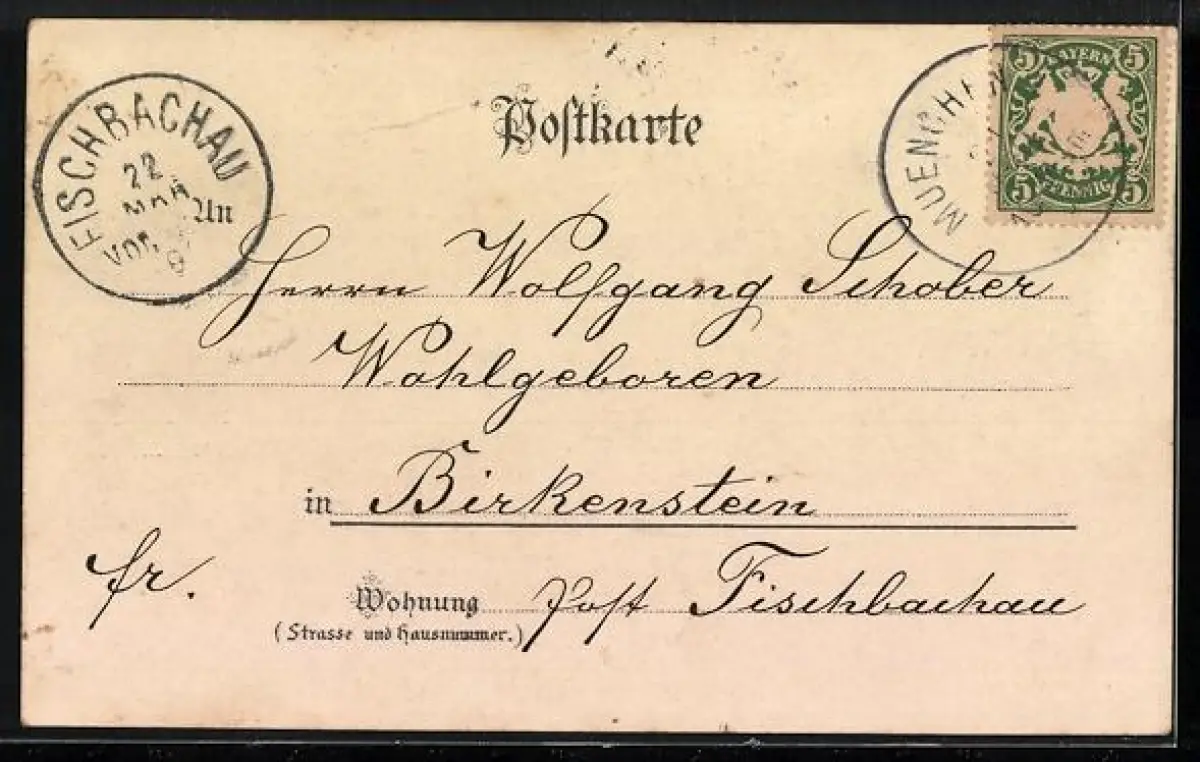 Postkarte
5 BAYERN 5
5 PFENNIG 5
MUENCHEN
FISCHBACHAU
22
MÄR
VOR.
An
Herrn Wolfgang Schober
Wohlgeboren
in Birkenstein
fr.
Wohnung Post Fischbachau
(Strasse und Hausnummer.)